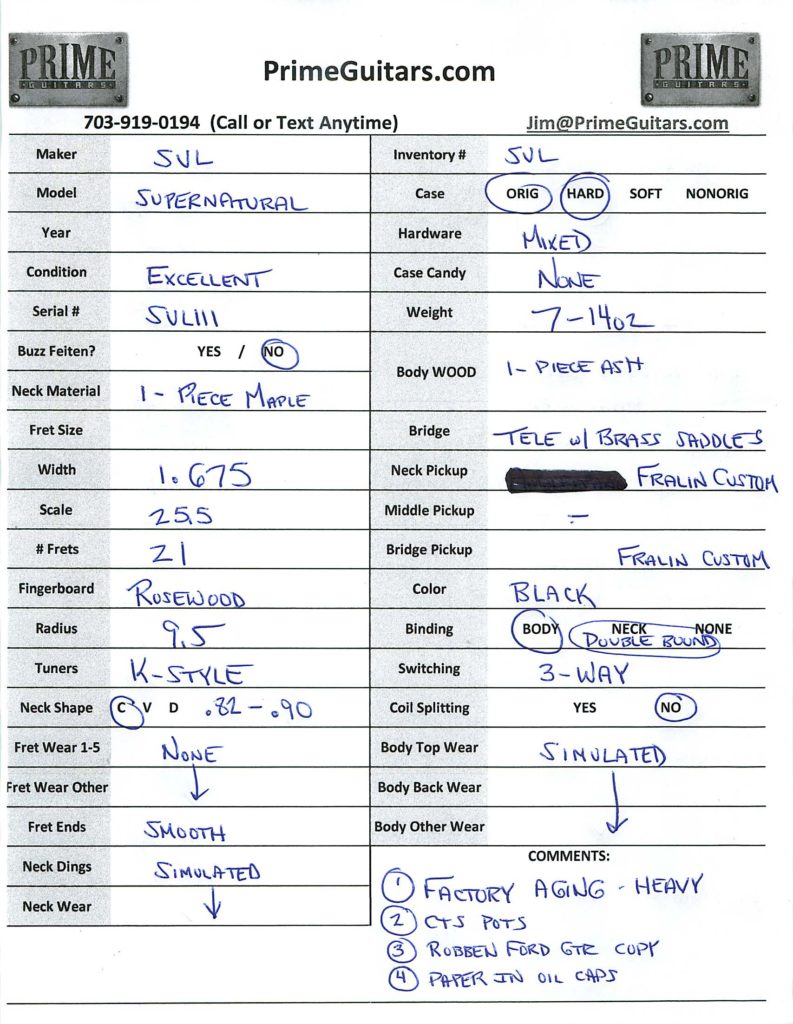 PRIME
GUITARS
PrimeGuitars.com
PRIME
GUITARS
703-919-0194 (Call or Text Anytime)
Jim@PrimeGuitars.com
Maker SVL
Inventory # SVL
Model SUPERNATURAL
Case ORIG HARD SOFT NONORIG
Year
Hardware MIXED
Condition EXCELLENT
Case Candy NONE
Serial # SVL111
Weight 7-14oz
Buzz Feiten? YES / NO
Body WOOD 1-PIECE ASH
Neck Material 1-PIECE MAPLE
Fret Size
Bridge TELE w/ BRASS SADDLES
Width 1.675
Neck Pickup FRALIN CUSTOM
Scale 25.5
Middle Pickup -
# Frets 21
Bridge Pickup FRALIN CUSTOM
Fingerboard ROSEWOOD
Color BLACK
Radius 9.5
Binding BODY NECK NONE
DOUBLE BOUND
Tuners K-STYLE
Switching 3-WAY
Neck Shape C V D .82-.90
Coil Splitting YES NO
Fret Wear 1-5 NONE
Body Top Wear SIMULATED
Fret Wear Other ↓
Body Back Wear ↓
Fret Ends SMOOTH
Body Other Wear
Neck Dings SIMULATED
Neck Wear ↓
COMMENTS:
① FACTORY AGING - HEAVY
② CTS POTS
③ ROBBEN FORD GTR COPY
④ PAPER IN OIL CAPS